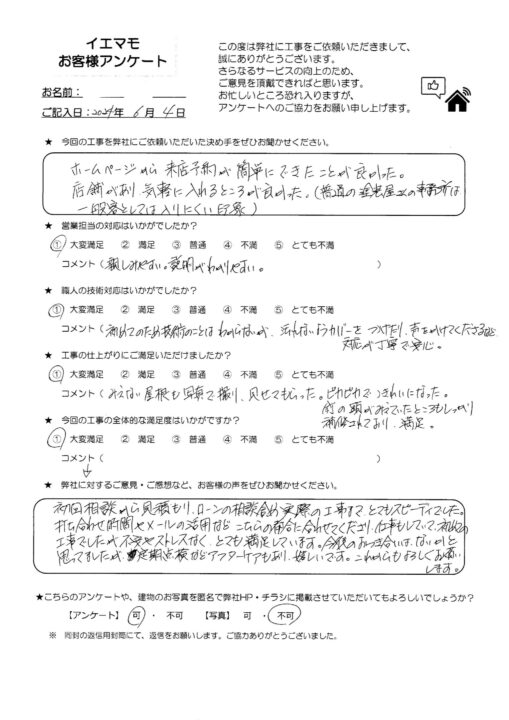 イエマモ
お客様アンケート
この度は弊社に工事をご依頼いただきまして、
誠にありがとうございます。
さらなるサービスの向上のため、
ご意見を頂戴できればと思います。
お忙しいところ恐れ入りますが、
アンケートへのご協力をお願い申し上げます。
お名前：
ご記入日：2024年 6月 4日
★ 今回の工事を弊社にご依頼いただいた決め手をぜひお聞かせください。
ホームページから来店予約が簡単にできたことが良かった。
店舗があり気軽に入れるところが良かった。(普通の塗装屋さんの事務所は
一般客としては入りにくい印象)
★ 営業担当の対応はいかがでしたか？
① 大変満足 ② 満足 ③ 普通 ④ 不満 ⑤ とても不満
コメント（親しみやすい。説明がわかりやすい。）
★ 職人の技術対応はいかがでしたか？
① 大変満足 ② 満足 ③ 普通 ④ 不満 ⑤ とても不満
コメント（初めてのため技術のことはわからないが、汚れないようカバーをつけたり、声をかけてくださるなど
対応が丁寧で安心。
★ 工事の仕上がりにご満足いただけましたか？
① 大変満足 ② 満足 ③ 普通 ④ 不満 ⑤ とても不満
コメント（みえない屋根も写真で撮り、見せてもらった。ピカピカできれいになった。
釘の頭がみえていたところもしっかり
補修されており、満足。
★ 今回の工事の全体的な満足度はいかがですか？
① 大変満足 ② 満足 ③ 普通 ④ 不満 ⑤ とても不満
コメント（
★ 弊社に対するご意見・ご感想など、お客様の声をぜひお聞かせください。
初回相談から見積もり、ローンの相談含め実際の工事まで、とてもスピーディでした。
打ち合わせ時間やメールの活用など こちらの都合に合わせてくださり、仕事もしていて、初めての
工事でしたが不安やストレスがなく、とても満足しています。今後のおつき合いは、ないのかと
思ってましたが、定期点検などアフターケアもあり、嬉しいです。これからもよろしくお願い
します。
★こちらのアンケートや、建物のお写真を匿名で弊社HP・チラシに掲載させていただいてもよろしいでしょうか？
【アンケート】 可 ・ 不可 【写真】 可 ・ 不可
※ 同封の返信用封筒にて、返信をお願いします。ご協力ありがとうございました。